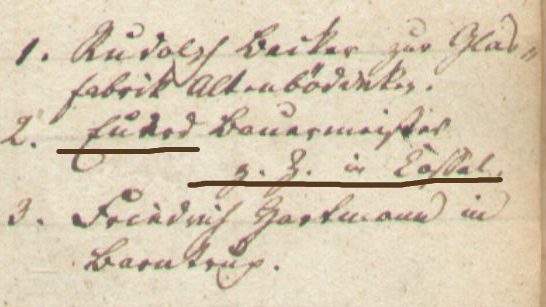 1. Rudolph Becker zur Glas-
fabrik Altenböddeken.
2. Eduard Bauermeister
z. Z. in Cassel.
3. Friedrich Hartmann in
Barntrup.